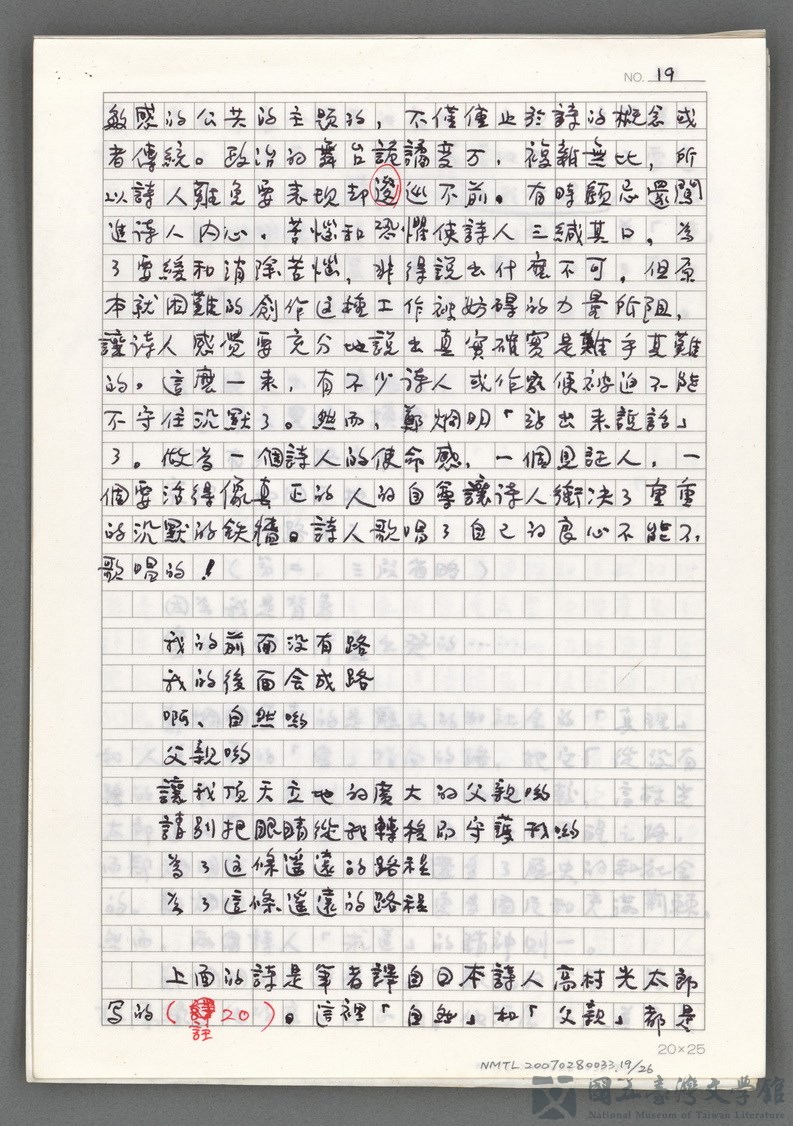 NO. 19
敏感的公共的主題的，不僅僅止於詩的概念或
者傳統。政治的舞台詭譎变万，複雜無比，所
以詩人難免要表現却逡巡不前。有時顧忌還闖
進诗人内心。苦惱和恐懼使詩人三緘其口，為
了要緩和消除苦惱，非得説出什麼不可，但原
本就困難的創作这種工作被妨碍的力量所阻，
讓诗人感覺要充分地說出真實確實是難乎其難
的。這麼一来，有不少诗人或作家便被迫不能
不守住沉默了。然而，鄭烱明「站出来説話」
了。做為一個詩人的使命感，一個見証人，一
個要活得像真正的人的自尊讓诗人衝決了重重
的沉默的鉄牆。詩人歌唱了自己的良心不能不
歌唱的！
我的前面没有路
我的後面会成路
啊，自然喲
父親喲
讓我頂天立地的廣大的父親喲
請别把眼睛從我轉移而守護我喲
為了这條遥遠的路程
為了這條遥遠的路程
上面的詩是筆者譯自日本詩人高村光太郎
写的（註20）。這裡「自然」和「父親」都是
20×25
NMTL 20070280033.19/26
國立臺灣文學館
National Museum of Taiwan Literature